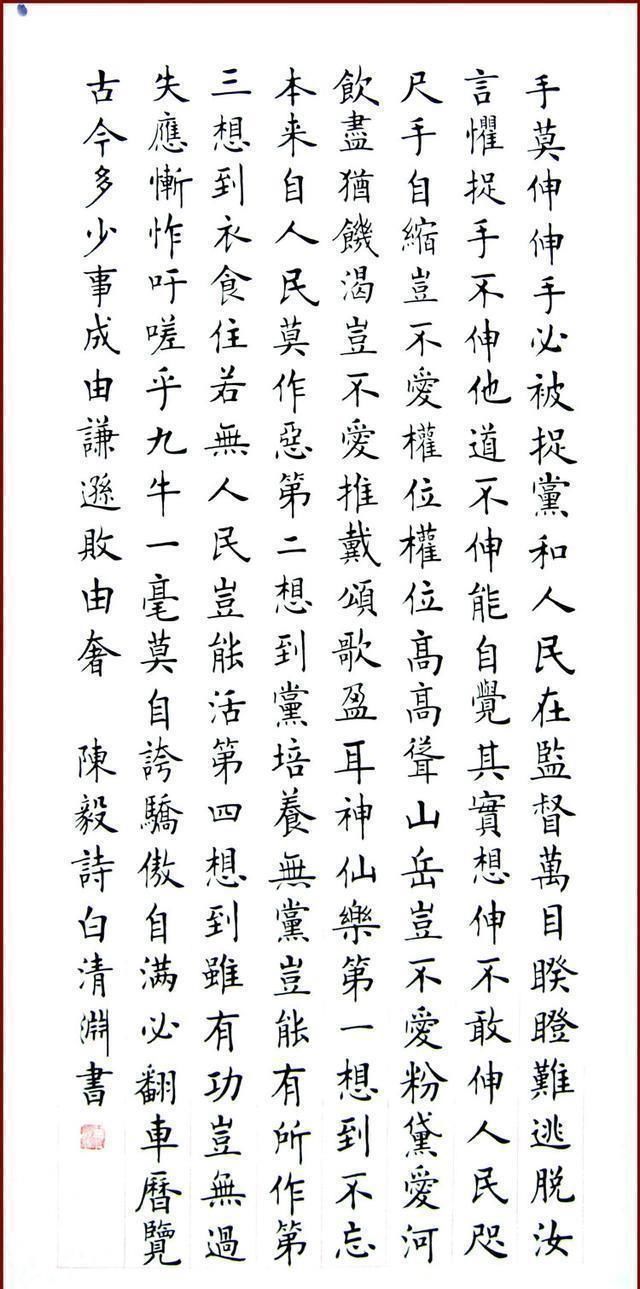 手莫伸伸手必被捉黨和人民在監督萬目睽瞪難逃脱汝
言懼捉手不伸他道不伸能自覺其實想伸不敢伸人民咫
尺手自縮豈不愛權位權位高高聳山岳豈不愛粉黛愛河
飲盡猶饑渴豈不愛推戴頌歌盈耳神仙樂第一想到不忘
本来自人民莫作惡第二想到黨培養無黨豈能有所作第
三想到衣食住若無人民豈能活第四想到雖有功豈無過
失應慚怍吁嗟乎九牛一毫莫自誇驕傲自满必翻車曆覽
古今多少事成由謙遜敗由奢 陳毅詩白清淵書